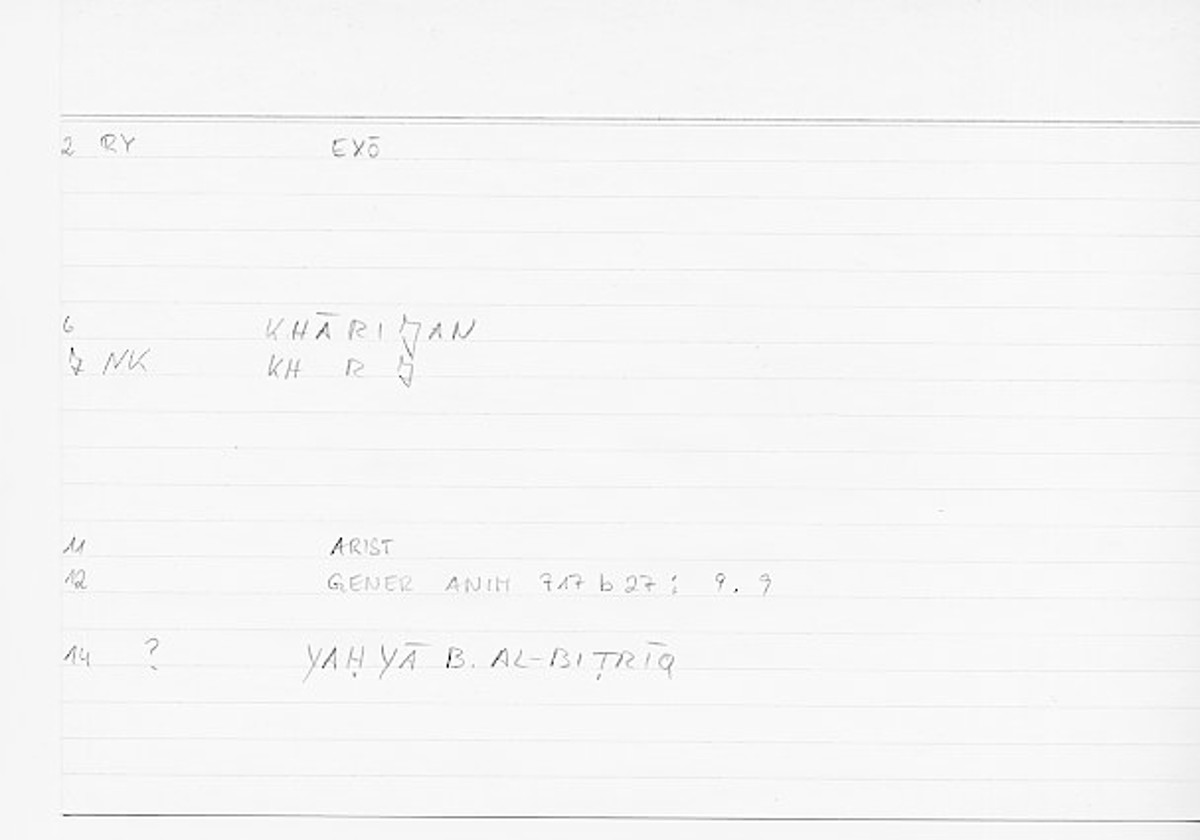 2 RY EXŌ
6 KHĀRIJAN
7 NK KH R J
11 ARIST
12 GENER ANIM 717 b 27 : 9. 9
14 ? YAḤYĀ B. AL-BIṬRĪQ